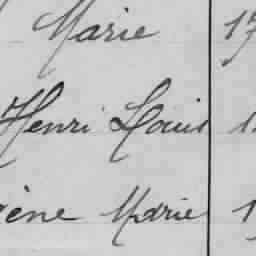 Marie 17
Henri Louis 1
ène Marie 1